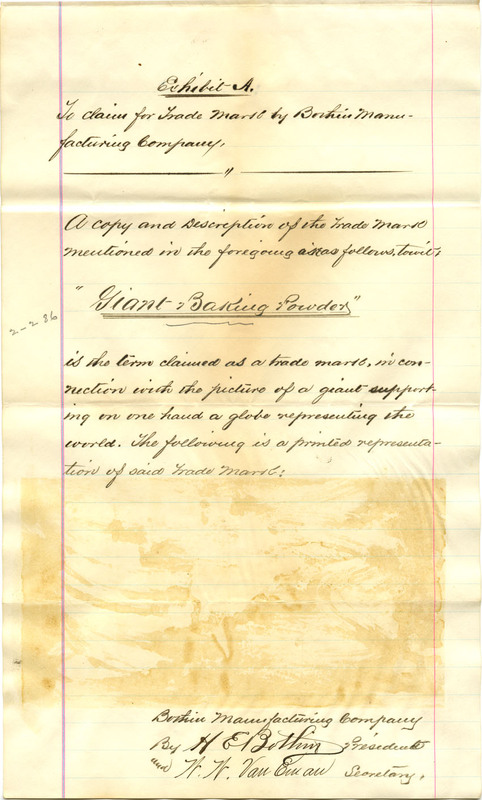 Exhibit A.
To claim for Trade Mark by Bothin Manu-
facturing Company,
"
A copy and Description of the Trade Mark
mentioned in the foregoing is as follows, to wit;
"Giant Baking Powder"
2-2 86
is the term claimed as a trade mark, in con-
nection with the picture of a giant support-
ing on one hand a globe representing the
world. The following is a printed representa-
tion of said Trade Mark:
Bothin Manufacturing Company
By H E Bothin President
and W. W. Van Eman Secretary.